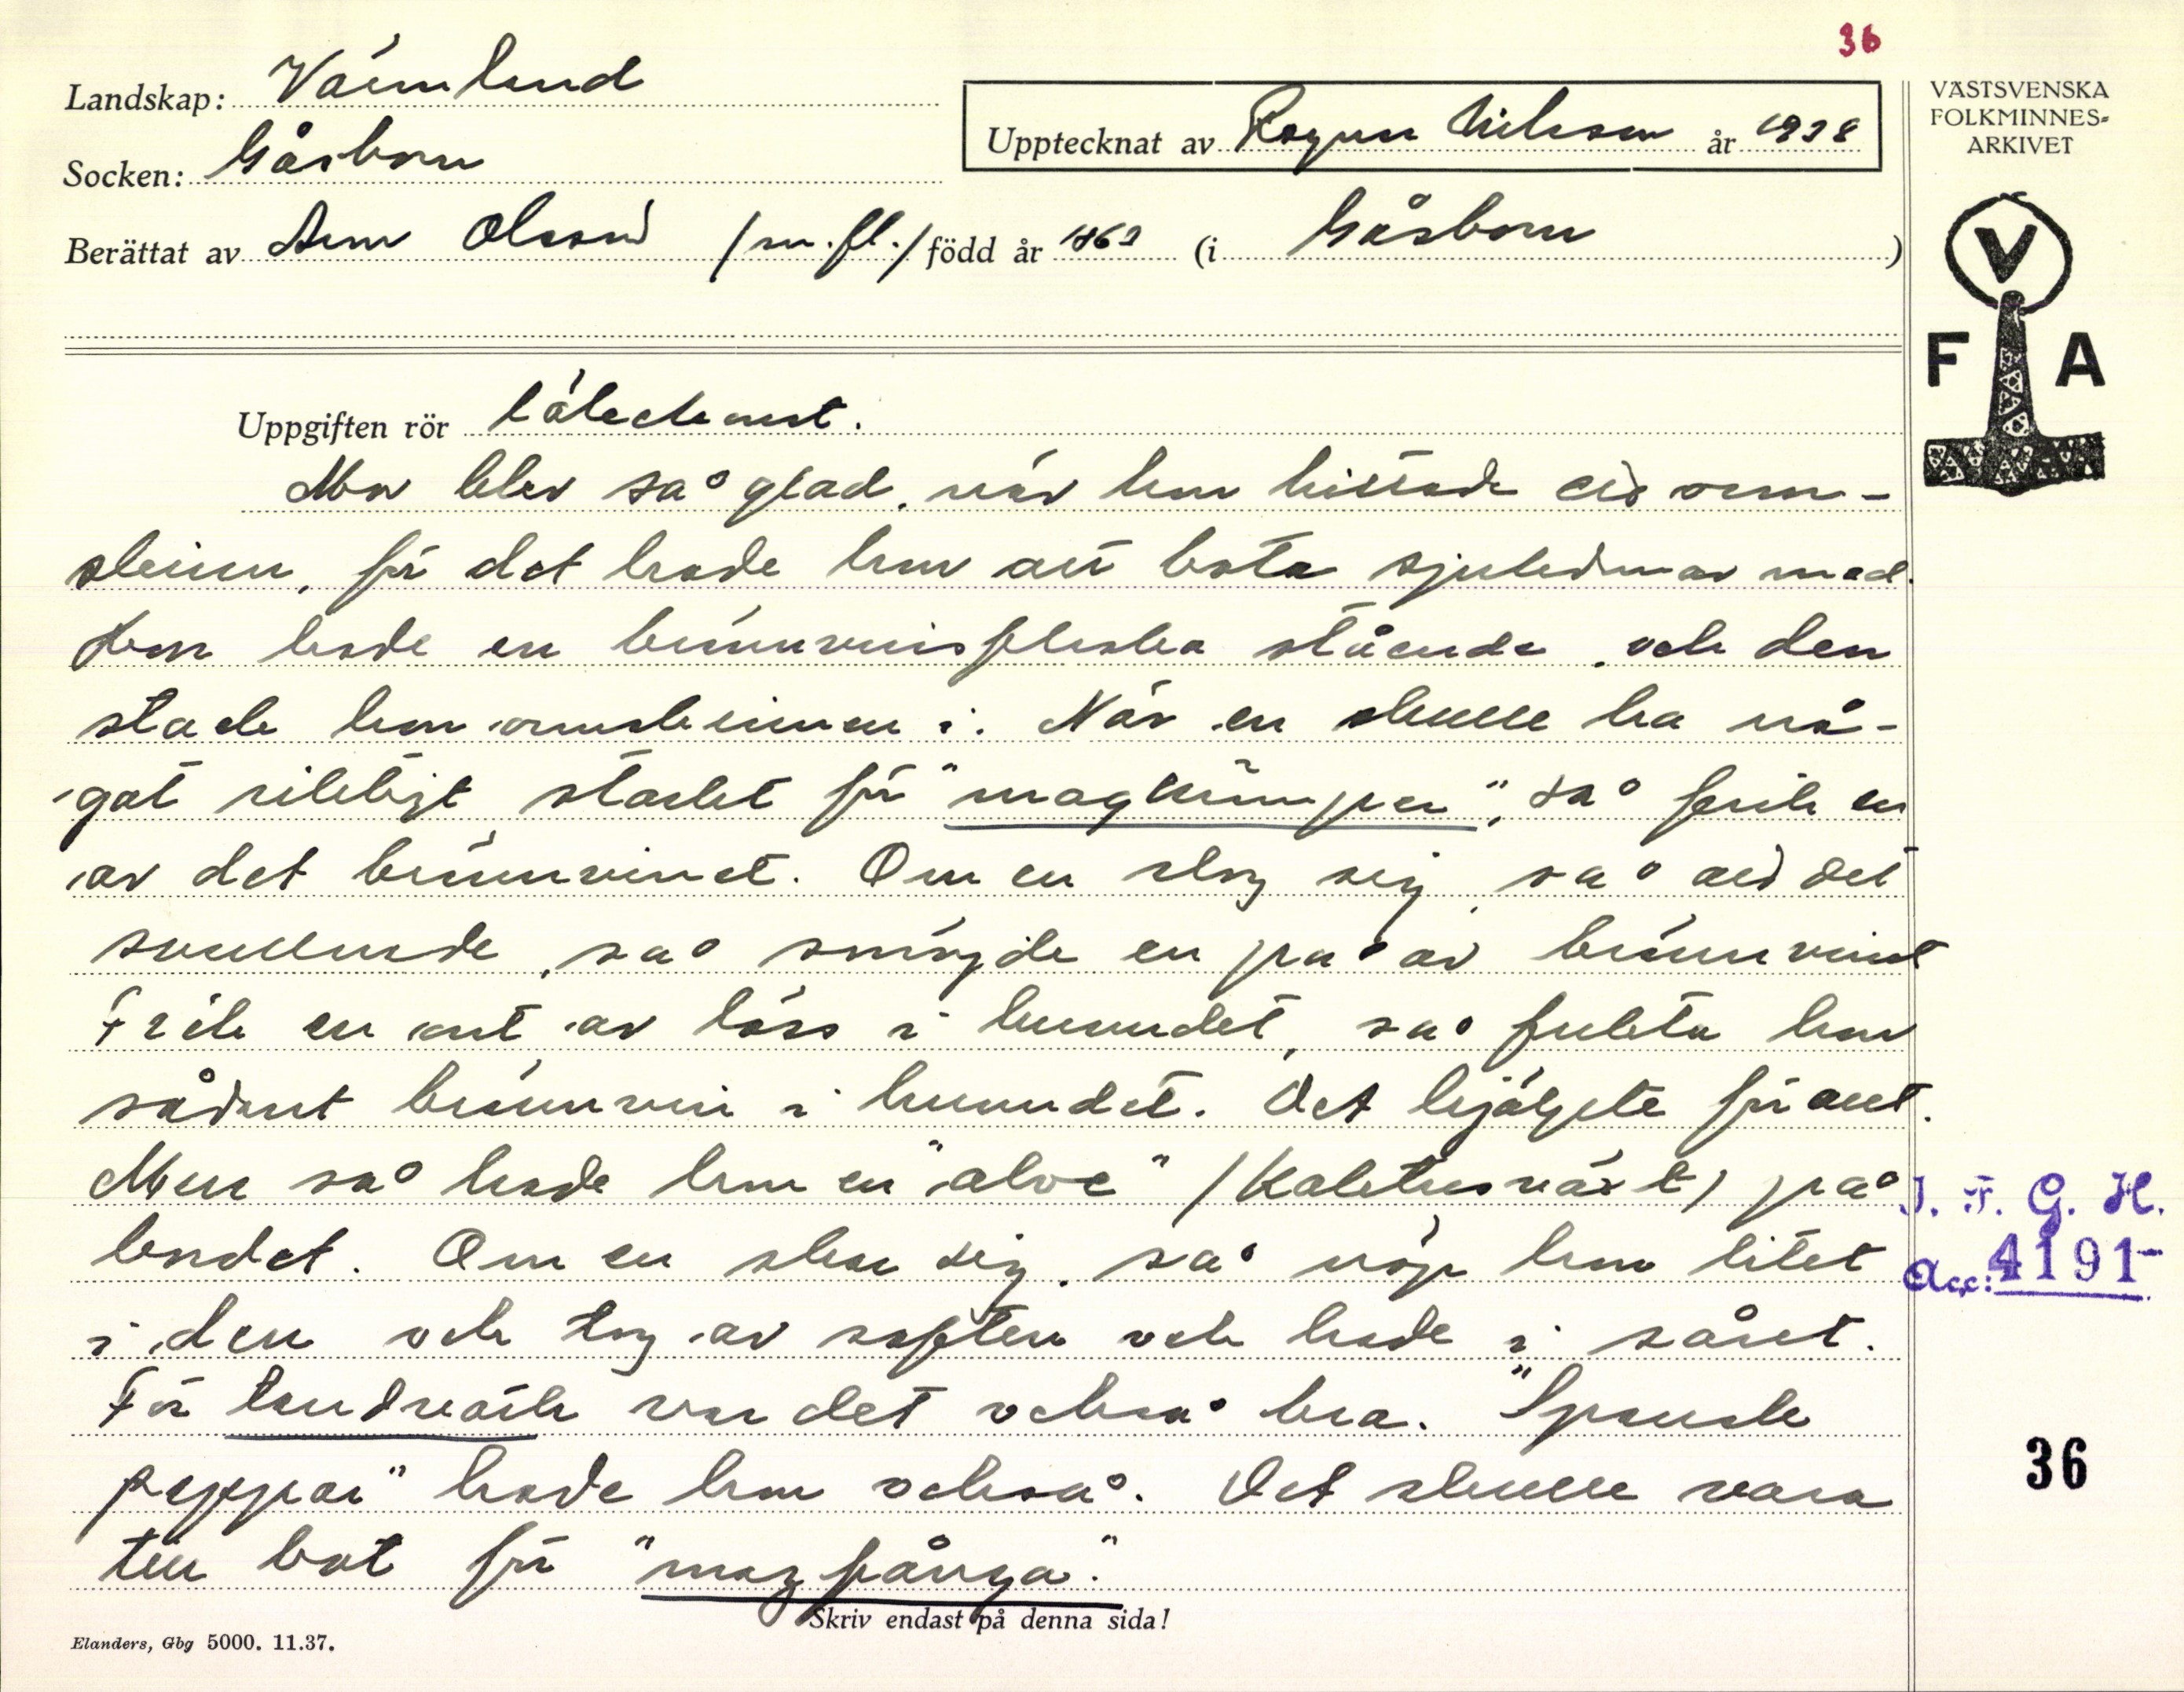 36
Landskap: Värmland
Socken: Gåsborn
Upptecknat av Ragnar Nilsson år 1938
Berättat av Anna Olsson /m.fl./ född år 1863 (i Gåsborn)
VÄSTSVENSKA
FOLKMINNES-
ARKIVET
V
F A
Uppgiften rör läkekonst.
Mor blev så glad, när hon hittade ett orm-
skinn, för det hade hon att bota sjukdomar med.
Hon hade en brännvinsflaska stående, och den
stack hon ormskinnen i. När en skulle ha nå-
got riktigt starkt för "magknipen", så fick en
av det brännvinet. Om en slog sig så att det
svullnade, så smörjde en på av brännvinet
Fick en ont av löss i huvudet, så fukta hon
sådant brännvin i huvudet. Det hjälpte för allt.
Men så hade hon en "aloe" /Kaktusväxt/ på
bordet. Om en skar sig, så nöp hon litet
i den och tog av saften och hade i såret.
För tandvärk var det också bra. "Spansk
peppar" hade hon också. Det skulle vara
till bot för "magpånga".
I. F. G. H.
Acc: 4191-
36
Skriv endast på denna sida!
Elanders, Gbg 5000. 11.37.